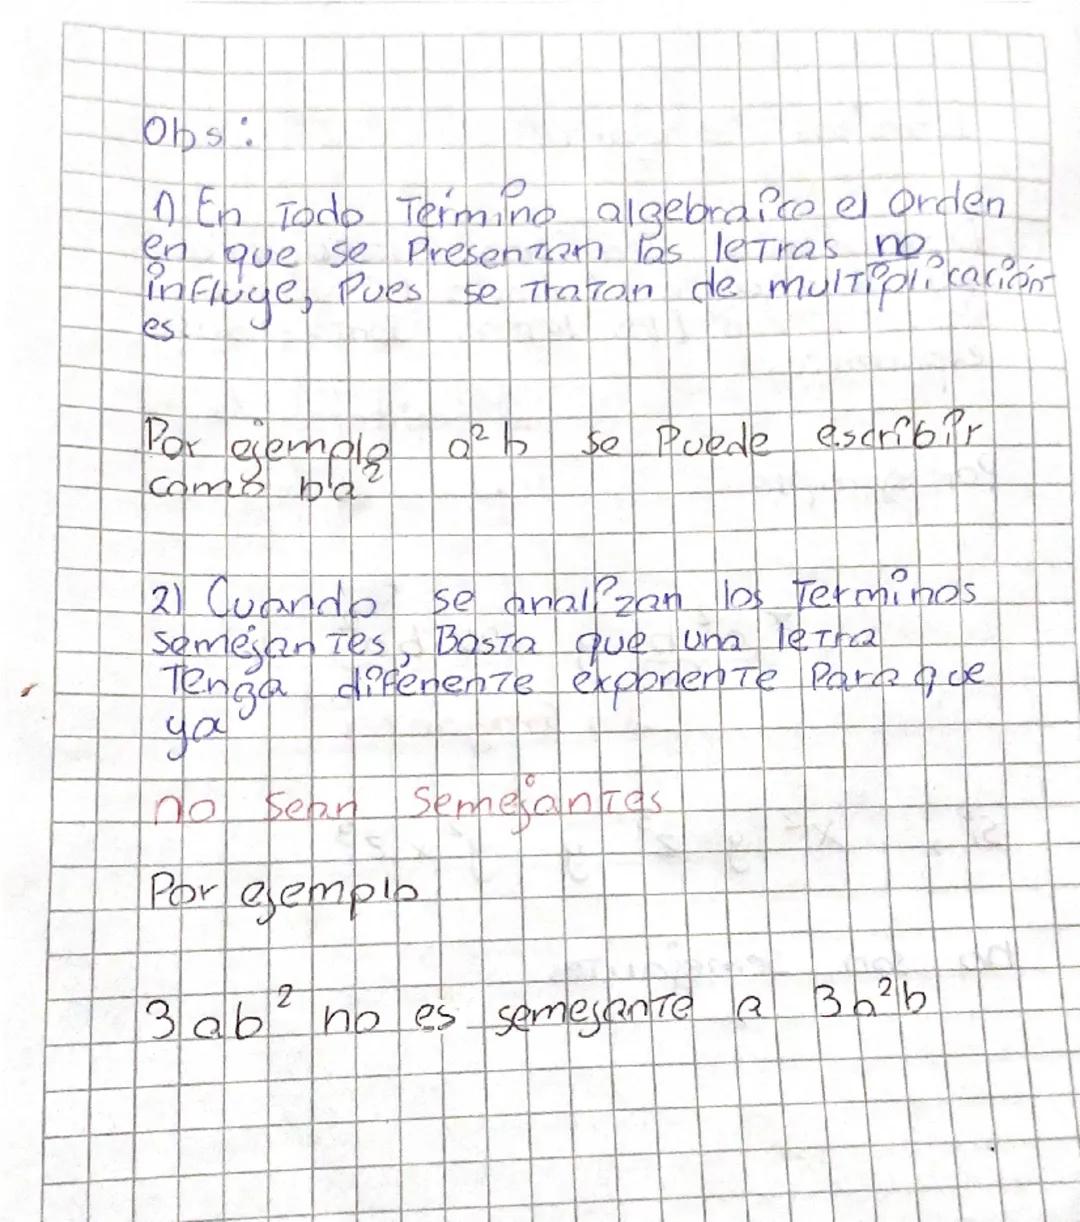 Obs:
1) En Todo Término algebraico el orden
en que se Presentan las letras no
influye, Pues se tratan de multiplicación
es
Por ejemplo a²b se Puede escribir
como ba²
2) Cuando se analizan los Terminos
semejantes, Basta que una letra
Tenga diferente exponente Para que
ya
no sean semejantes
Por ejemplo
3ab² no es semejante a 3a²b